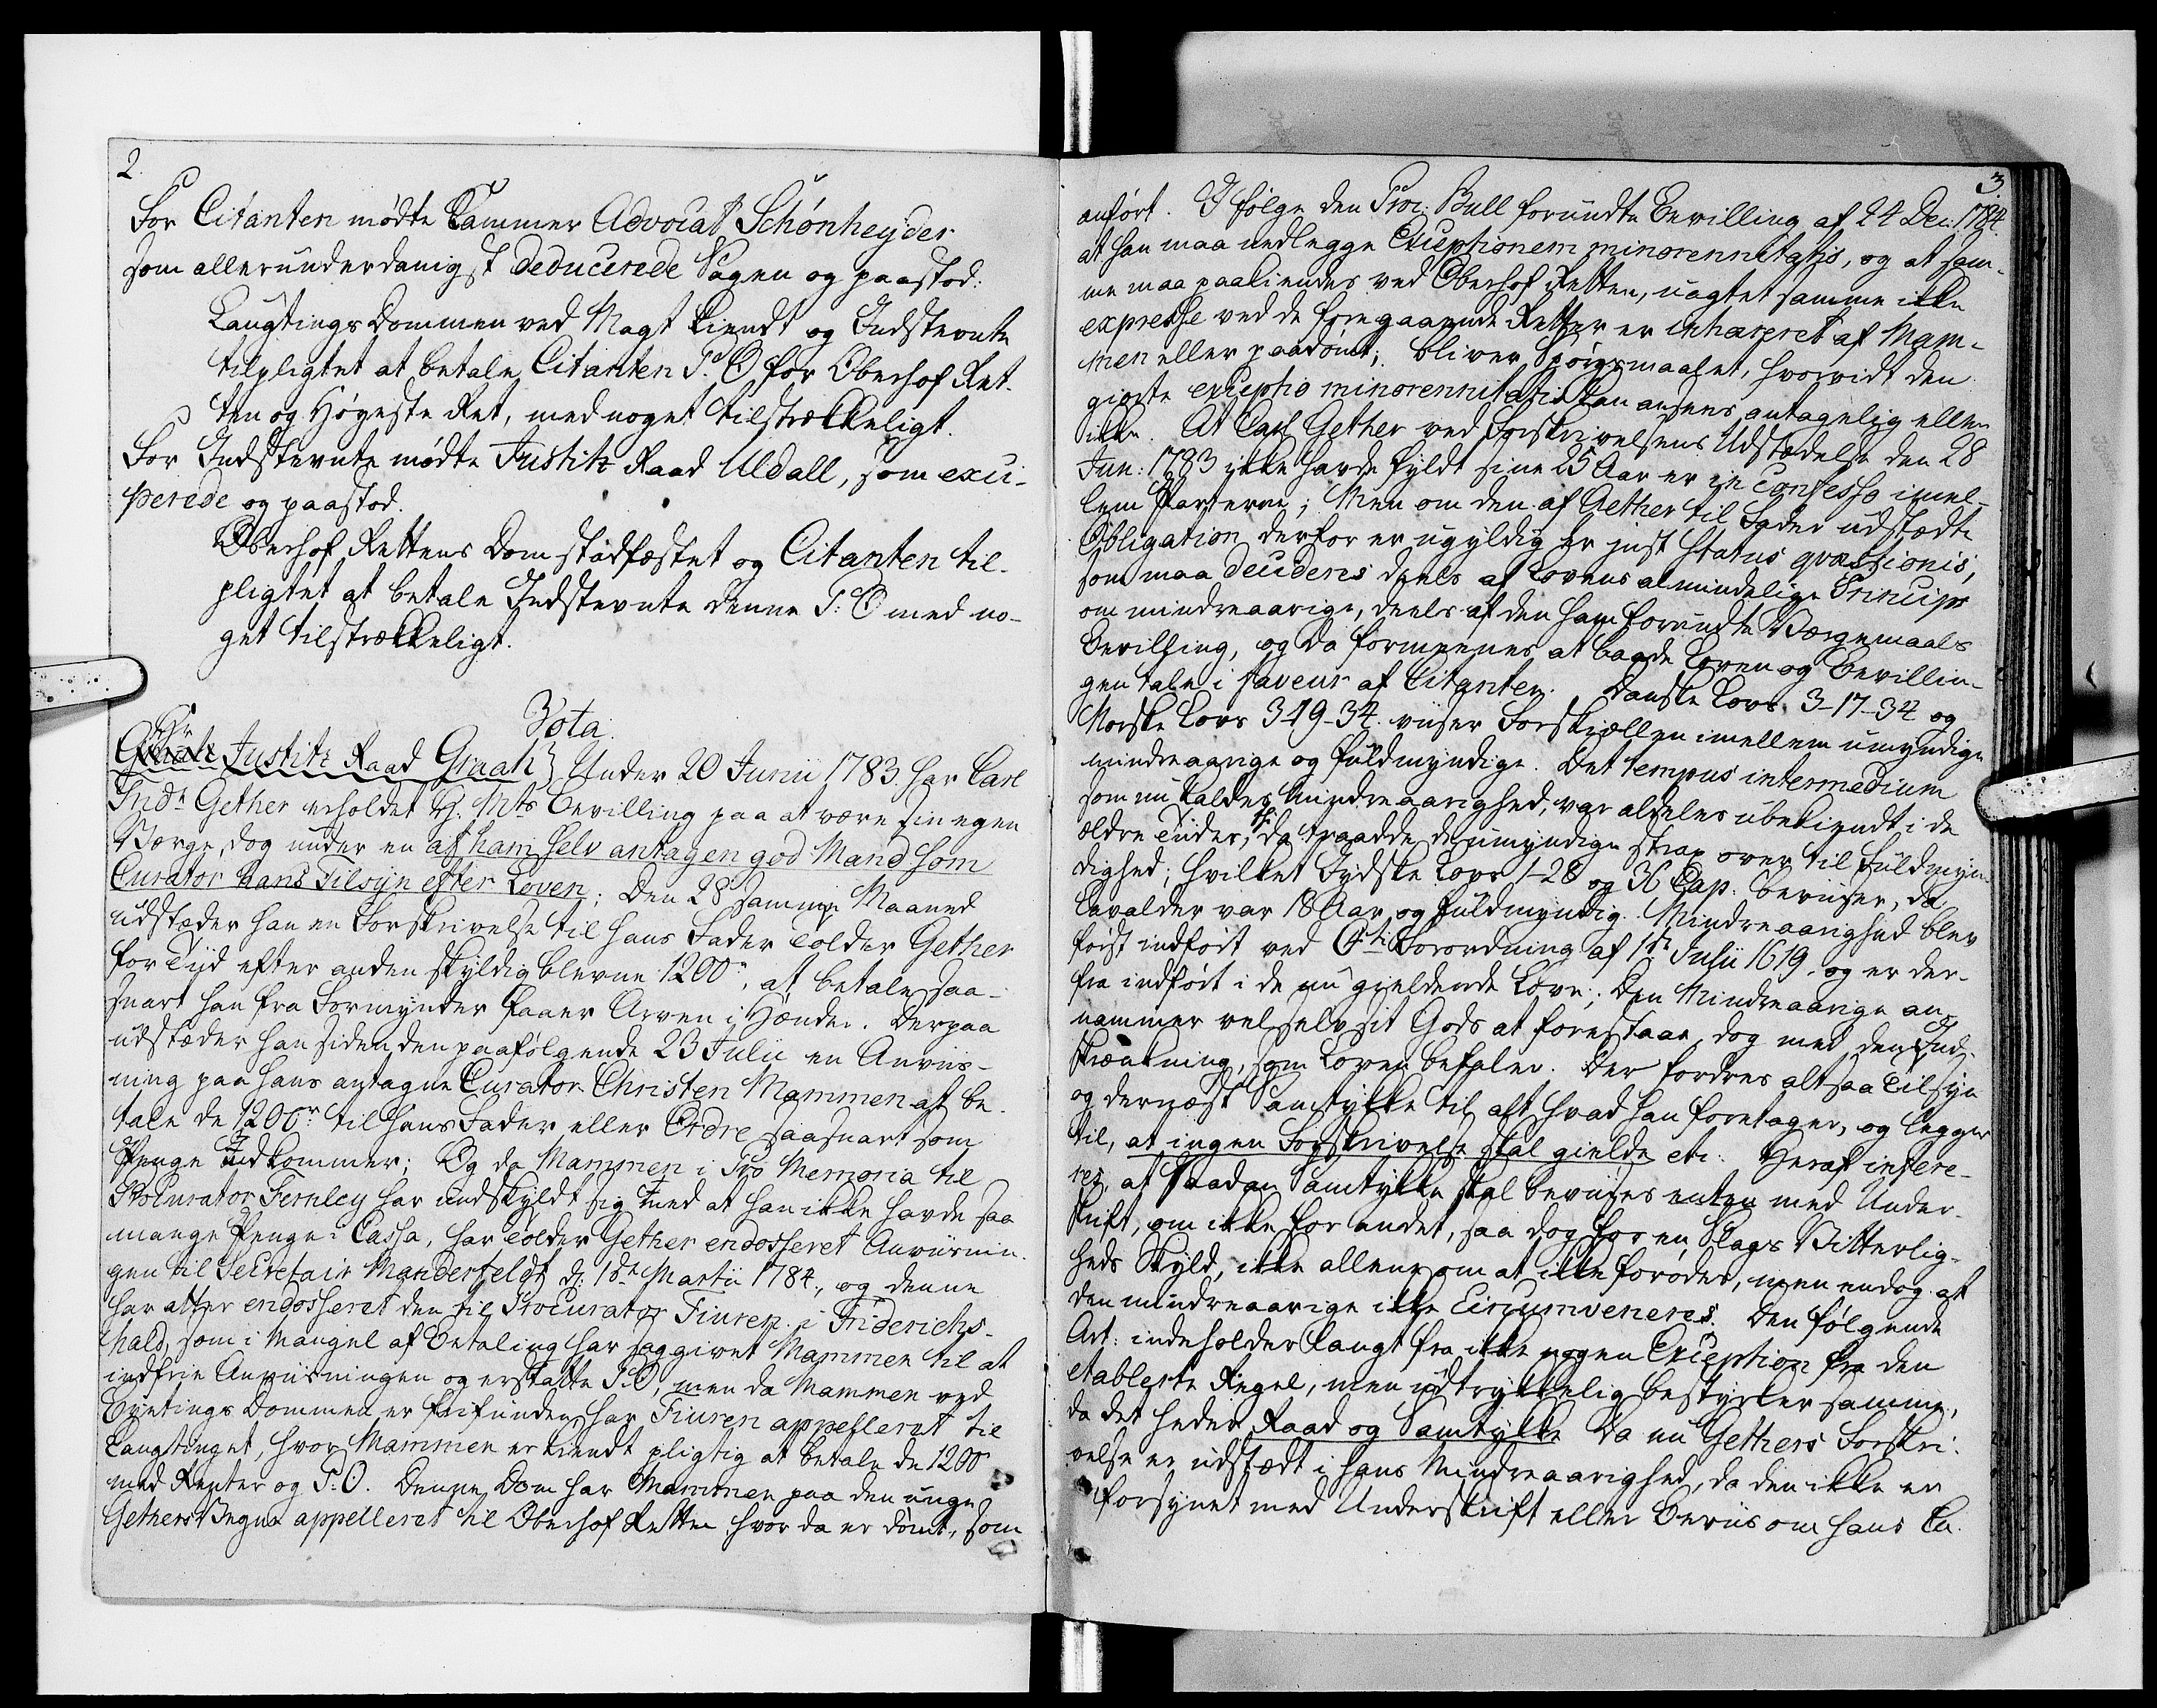 2.
For Citanten mødte Cammer Advocat Schönheyder
som allerunderdanigst deducerede Sagen og paastod:
Laugtings Dommen ved Magt kiendt og Indstevnte
tilpligtet at betale Citanten P: O for Oberhof Ret-
ten og Høyeste Ret, med noget tilstrækkeligt.
For Indstevnte mødte Justitz Raad Uldall, som exci-
perede og paastod.
Oberhof Rettens Dom stadfæstet og Citanten til-
pligtet at betale Indstevnte denne P: O med no-
get tilstrækkeligt.
Vota.
Hr Justitz Raad Graah} Under 20 Junii 1783 har Carl
Frid: Gether erholdet K: Mts Bevilling paa at være sin egen
Værge, dog under en af ham selv antagen god Mand som
Curator hans Tilsyn efter Loven; Den 28 samme Maaned
udstæder han en Forskrivelse til hans Fader Tolder Gether
for Tiid efter anden skyldig blevne 1200 r, at betale saa-
snart han fra Formynder faaer Arven i Hænder. Derpaa
udstæder han siden den paafølgende 23 Julii en Anviis-
ning paa hans antagne Curator Christen Mammen at be-
tale de 1200 r til hans Fader eller Ordre saasnart som
Penge indkommer; Og da Mammen i Pro Memoria til
Procurator Fernley har undskyldt sig med at han ikke havde saa
mange Penge i Cassa, har Tolder Gether endosseret Anviisnin-
gen til Secretair Manderfeldt d: 1de Martii 1784, og denne
har atter endosseret den til Procurator Fiuren i Friderichs-
hald, som i Mangel af Betaling har saggivet Mammen til at
indfrie Anviisningen og erstatte P: O, men da Mammen ved
Byetings Dommen er frifunden, har Fiuren appelleret til
Laugtinget, hvor Mammen er kiendt pligtig at betale de 1200 r
med Renter og P: O. Denne Dom har Mammen paa den unge
Gethers Vegne appelleret til Oberhof Retten hvor da er dømt, som
3.
anført. I følge den Proc: Bull forundte Bevilling af 24 Dec: 1784.
at han maa nedlegge Exceptionem minorennitatis, og at sam-
me maa paakiendes ved Oberhof Retten, uagtet samme ikke
expresse ved de foregaaende Retter er inhæreret af Mam-
men eller paadømt; bliver Spørgsmaalet, hvorvidt den
giorte exceptio minorennitatis kan ansees antagelig eller
ikke. At Carl Gether ved Forskrivelsens Udstædelse den 28
Jun: 1783 ikke havde fyldt sine 25 Aar er in confesso imel-
lem Parterne; Men om den af Gether til Fader udstædte
Obligation derfor er ugyldig er just status qvæstionis,
som maa decideres deels af Lovens almindelige Princip
om mindreaarige, deels af den ham forundte Værgemaals
Bevilling, og da formeenes at baade Loven og Bevillin-
gen tale i faveur af Citanten. Danske Lovs 3-17-34 og
Norske Lovs 3-19-34 viiser Forskiællen imellem umyndige
mindreaarige og fuldmyndige. Det tempus intermedium
som nu kaldes Mindreaarighed, var aldeles ubekiendt i de
ældre Tiider, thi da traadde de umyndige strax over til Fuldmyn-
dighed; hvilket Jydske Lovs 1-28 og 36 Cap. beviiser, da
Lavalder var 18 Aar og fuldmyndig. Mindreaarighed blev
først indført ved C 4ti Forordning af 1de Julii 1619, og er der-
fra indført i de nu gieldende Love; Den Mindreaarige an-
nammer vel selv sit Gods at forestaae, dog med den Ind-
skrænkning, som Loven befaler. Der fordres altsaa Tilsyn
og dernæst Samtykke til alt hvad han foretager, og legger
til, at ingen Forskrivelse skal gielde etc. Heraf infere-
res, at saadan Samtykke skal beviises enten med Under-
skrift, om ikke for andet, saa dog for en Slags Vitterlig-
heds Skyld, ikke allene om at ikke forøder, men endog at
den mindreaarige ikke Circumveneres. Den følgende
Art: indeholder langt fra ikke nogen Exception fra den
etablerte Regel, men udtrykkelig bestyrker samme,
da det heder Raad og Samtykke Da nu Gethers Forskri-
velse er udstædt i hans Mindreaarighed, da den ikke er
forsynet med Underskrift eller Beviis om hans Cu-